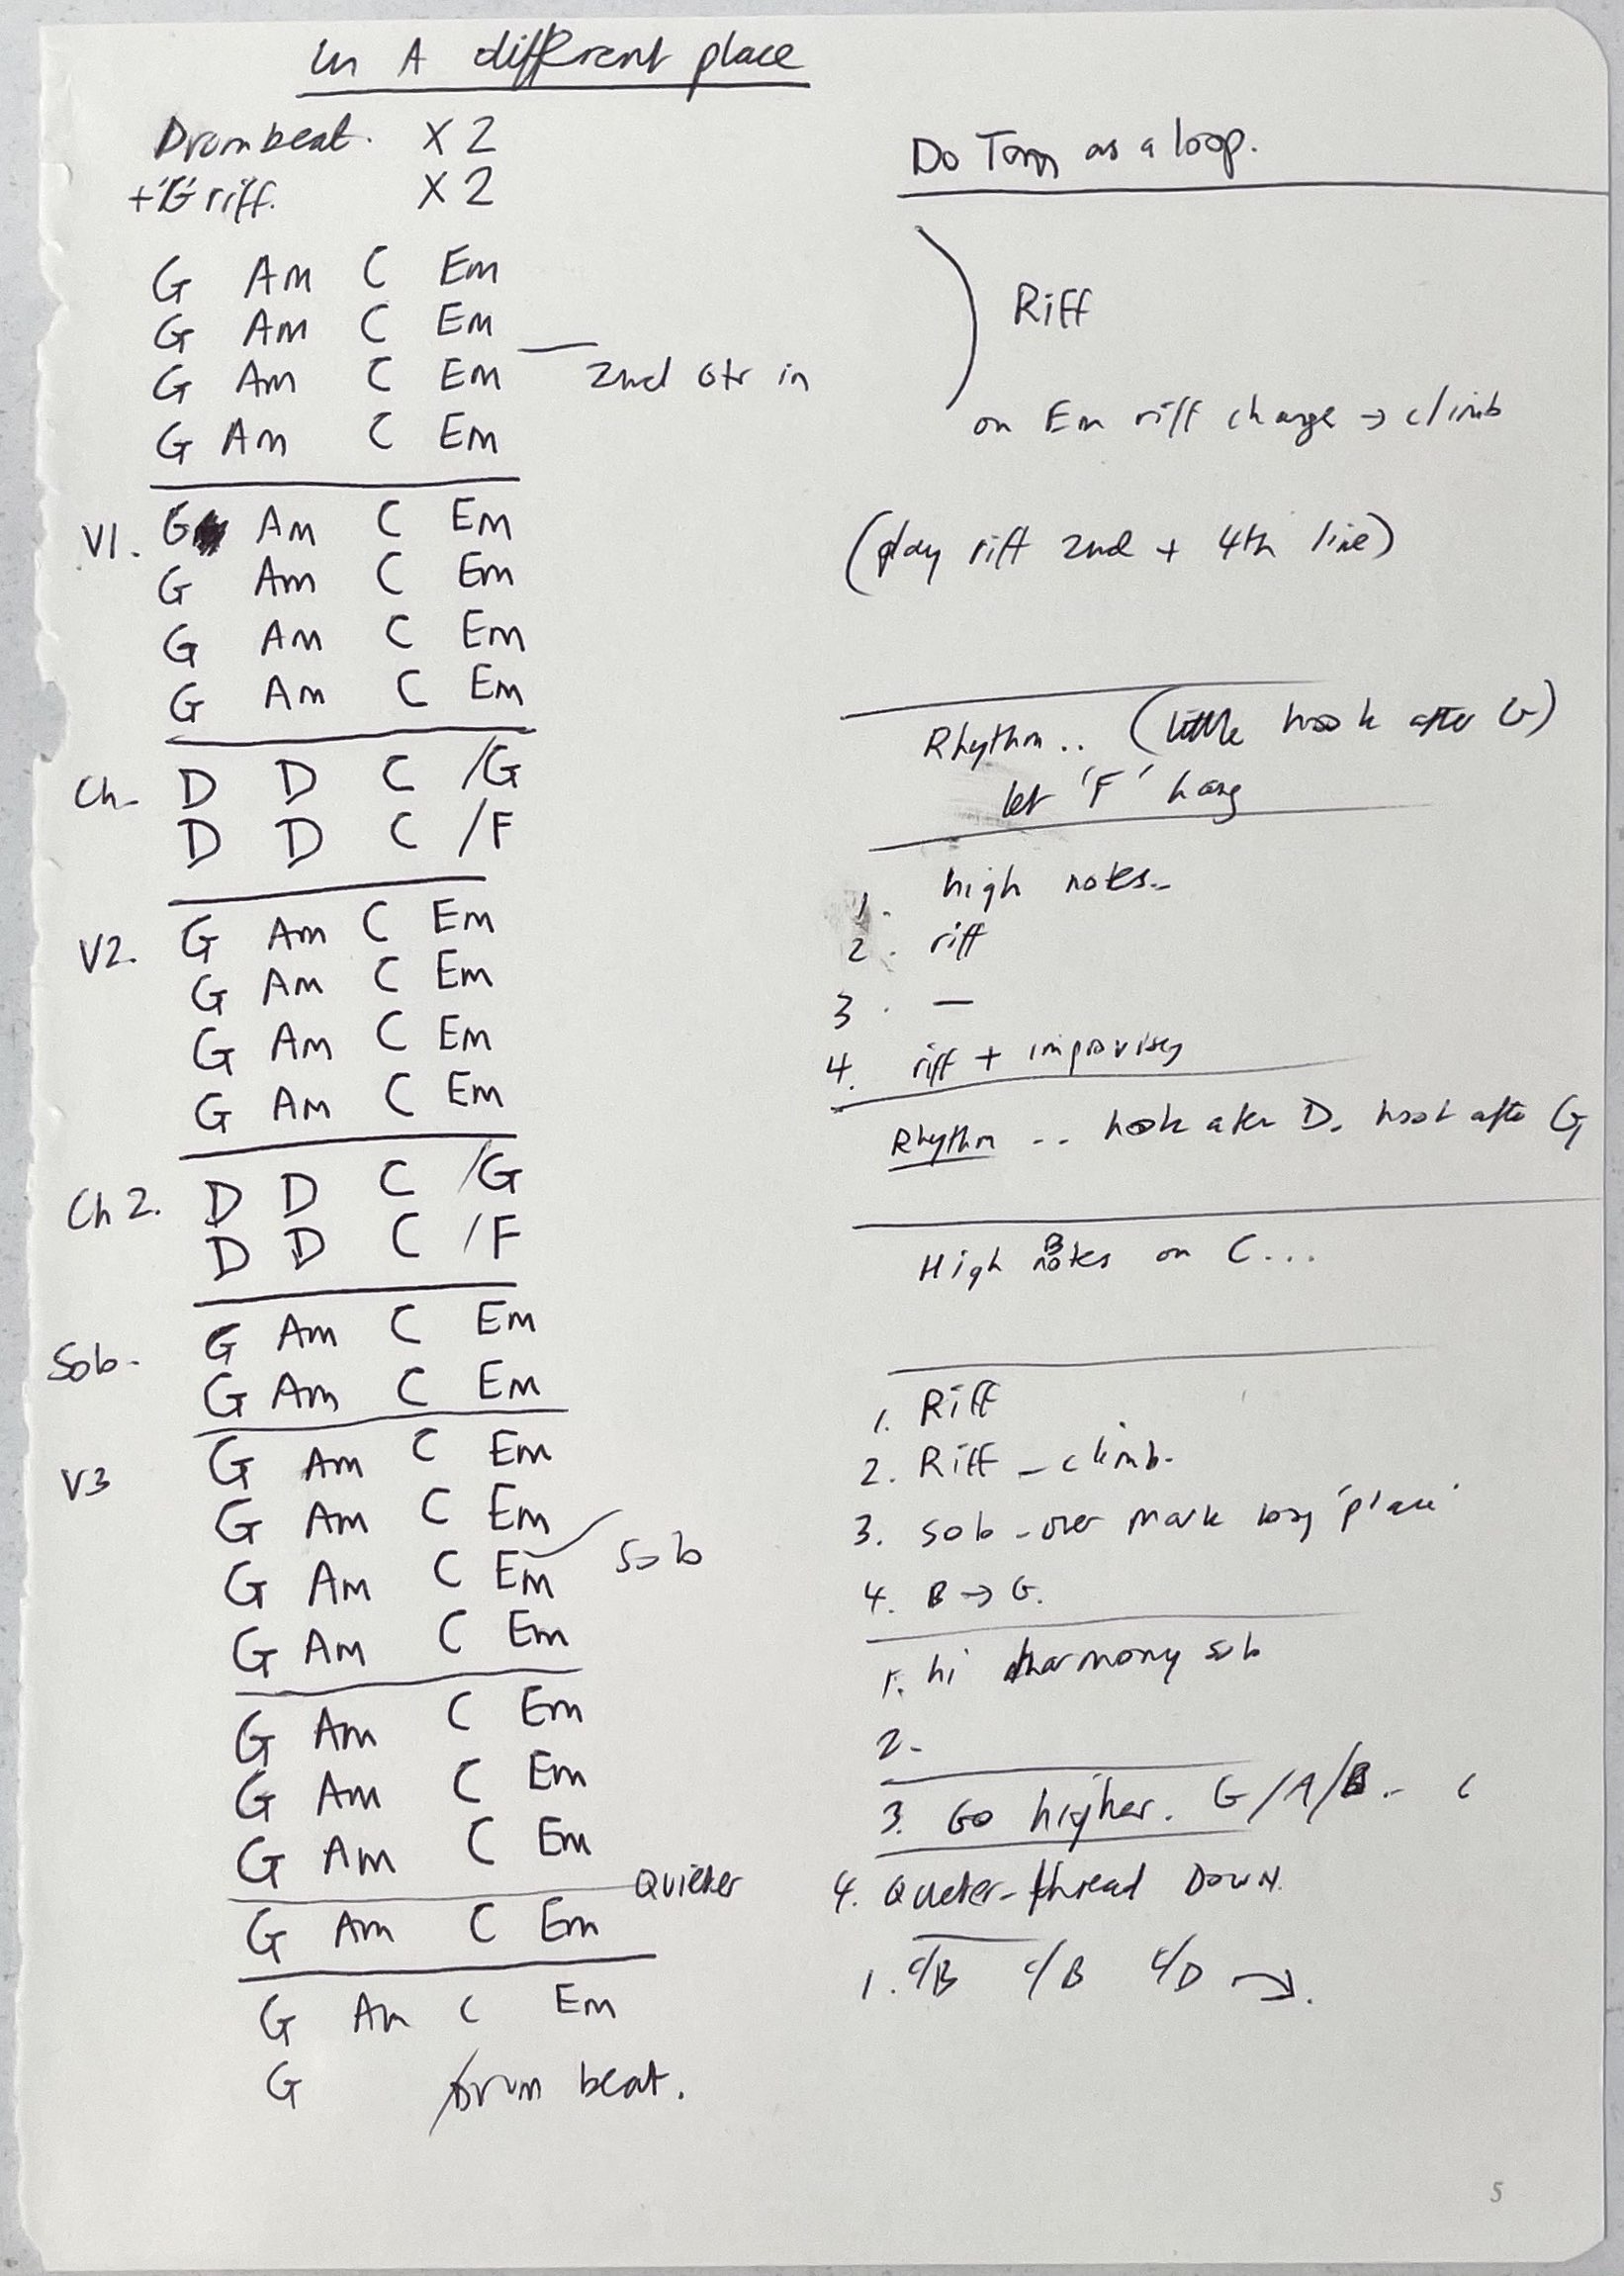 In A different place
Drum beat. X 2
+ 'G' riff. X 2
Do Tom as a loop.
G Am C Em
G Am C Em
2nd Gtr in
G Am C Em
G Am C Em
Riff
on Em riff change → climb
V1. G Am C Em
G Am C Em
G Am C Em
G Am C Em
(play riff 2nd + 4th line)
Ch- D D C /G
D D C /F
Rhythm .. (little hook after G)
let 'F' hang
V2. G Am C Em
G Am C Em
G Am C Em
G Am C Em
1. high notes..
2. riff
3. —
4. riff + improvise
Ch 2. D D C /G
D D C /F
Rhythm .. hook after D. hook after G
Solo- G Am C Em
G Am C Em
High notes on C...
V3 G Am C Em
G Am C Em
Solo
G Am C Em
G Am C Em
1. Riff
2. Riff - climb.
3. Solo - over Mark 'place'
4. B → G.
G Am C Em
G Am C Em
G Am C Em
Quieter
G Am C Em
1. hi harmony solo
2-
3. Go higher. G/A/B..
4. Quieter - thread DOWN.
G Am C Em
G Drum beat.
1. C/B C/B C/D →.
5